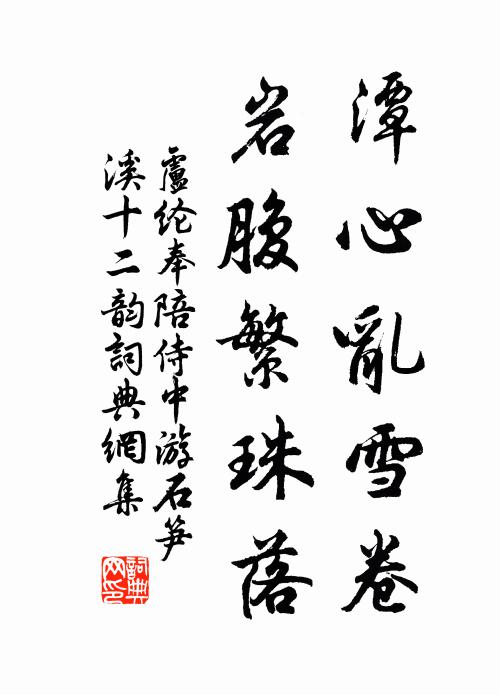 潭心亂雪卷
岩腹繁珠落
盧纶奉陪侍中游石笋
溪十二韵詞典網集
詞典
网印